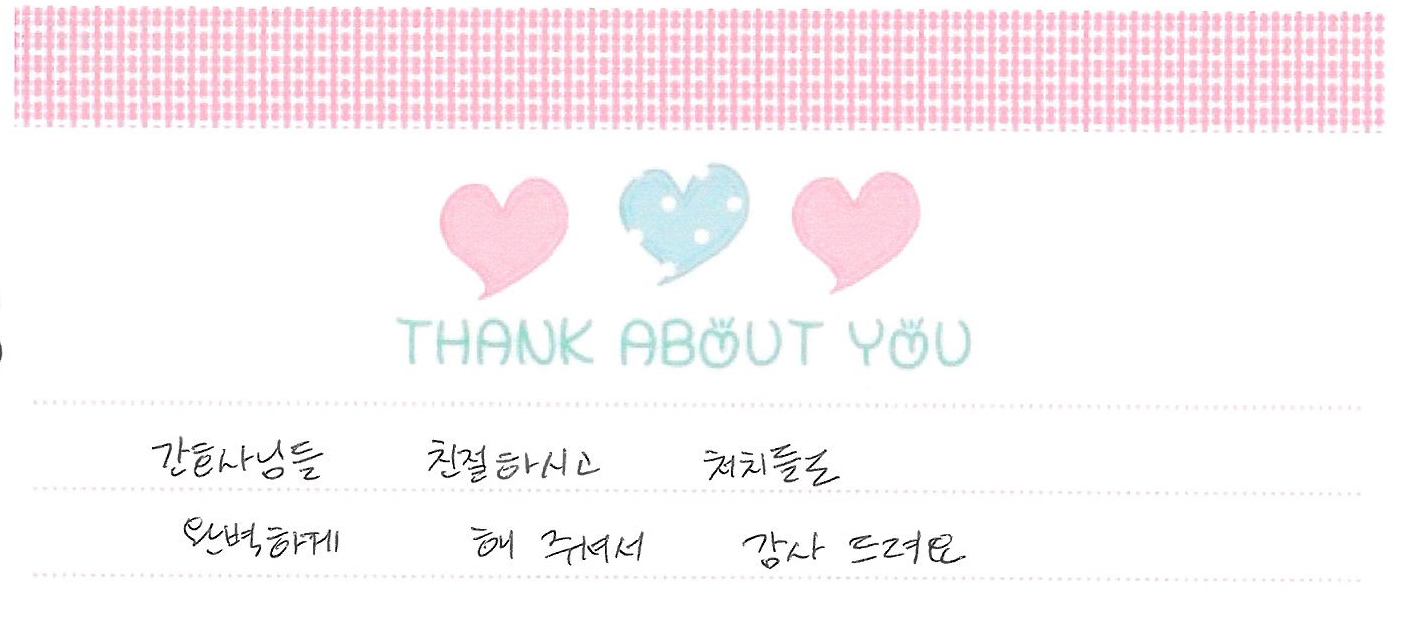 THANK ABOUT YOU
간호사님들 친절하시고 처치들도
완벽하게 해 주셔서 감사 드려요